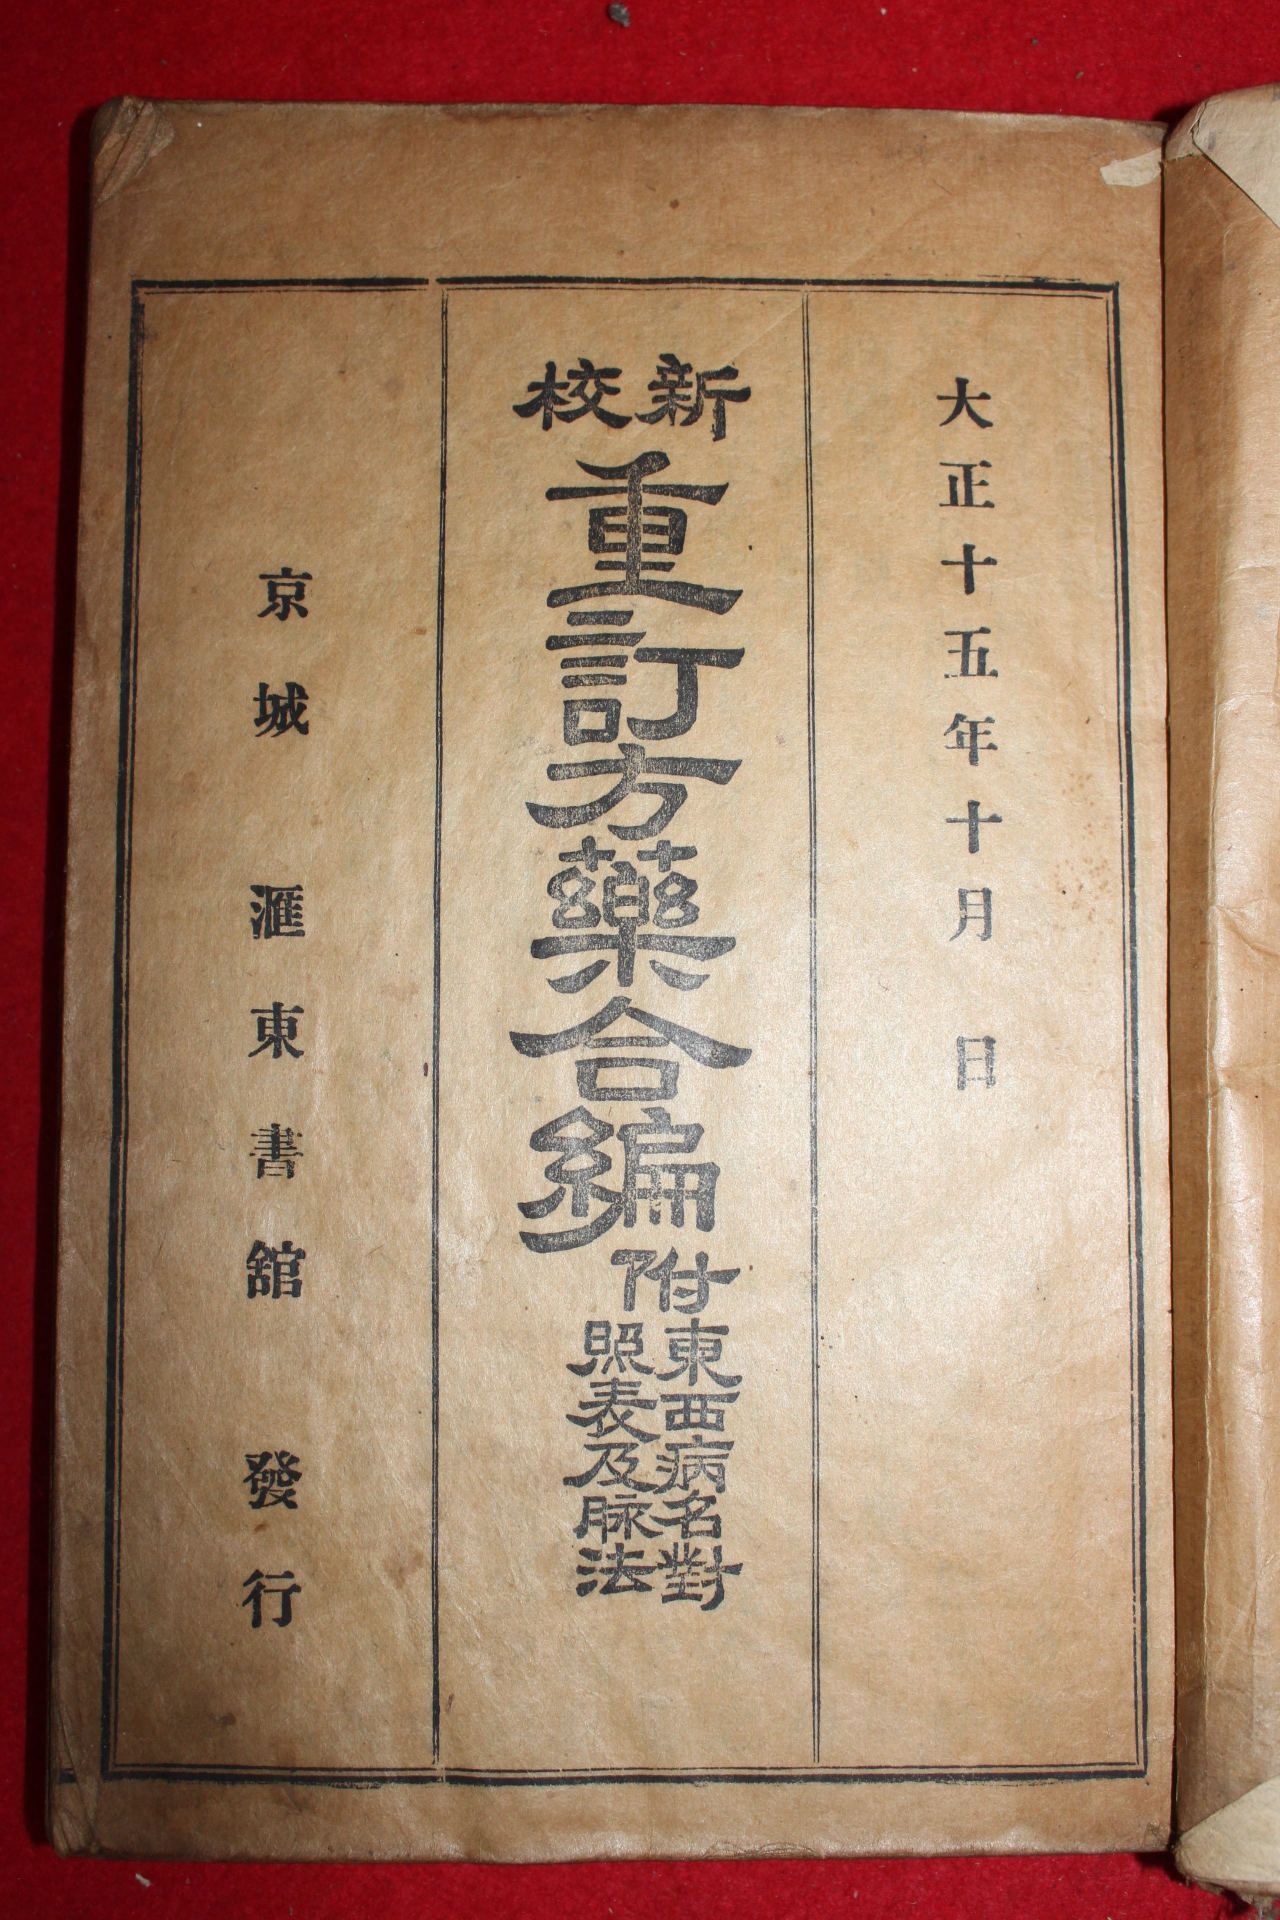 大正十五年十月 日
新校
重訂方藥合編
附
東西病名對
照表及脉法
京城 滙東書舘 發行